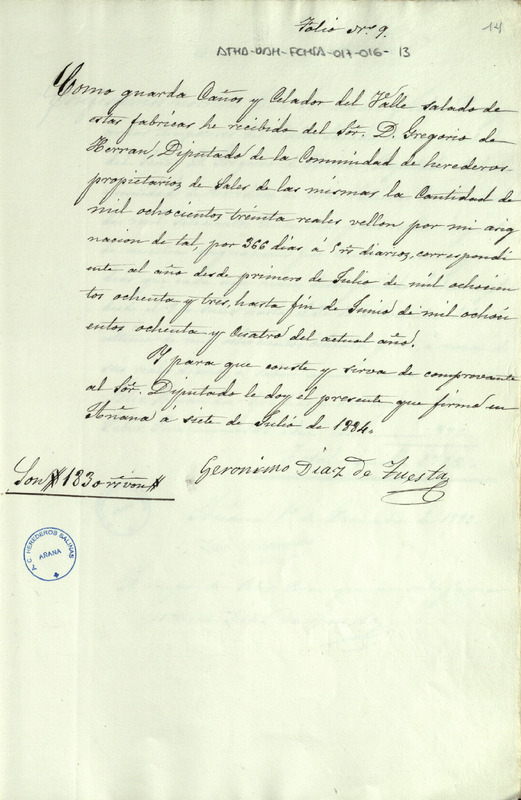 14
Folio Nro. 9.
ATHA-DAH-FCHSA-017-016-13
Como guarda Caños y Celador del Valle salado de
estas fabricas he recibido del Sor. D. Gregorio de
Herran, Diputado de la Comunidad de herederos
propietarios de Sales de las mismas la Cantidad de
mil ochocientos treinta reales vellon por mi asig
nacion de tal, por 366 dias á 5 rs. diarios, correspondi
ente al año desde primero de Julio de mil ochocien
tos ochenta y tres, hasta fin de Junio de mil ochoci
entos ochenta y cuatro del actual año.
Y para que conste y sirva de comprovante
al Sor. Diputado le doy el presente que firmo en
Añana á siete de Julio de 1884.
Geronimo Diaz de Tuesta
Son # 1830 rs. von #
T. C. HEREDEROS SALINAS
AÑANA